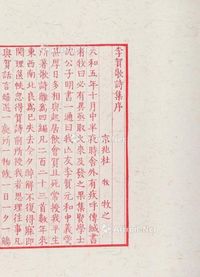 李賀歌詩集序
京兆杜 牧 牧之
大和五年十月中半夜時舍外有疾呼傳緘書
者曰必有異亟取火來及發之果集賢學士
沈公子明書一通曰我亡友李賀元和中義愛
甚厚日夕相與起居飲食賀且死嘗授我平生
所著歌詩離爲四編凡二百二十三首數年來
東西南北良爲已失去今夕醉解不復得寐即
閱理篋帙忽得賀詩前所授我者思理往事凡
與賀話言嬉遊一處所一物候一日一夕一觴